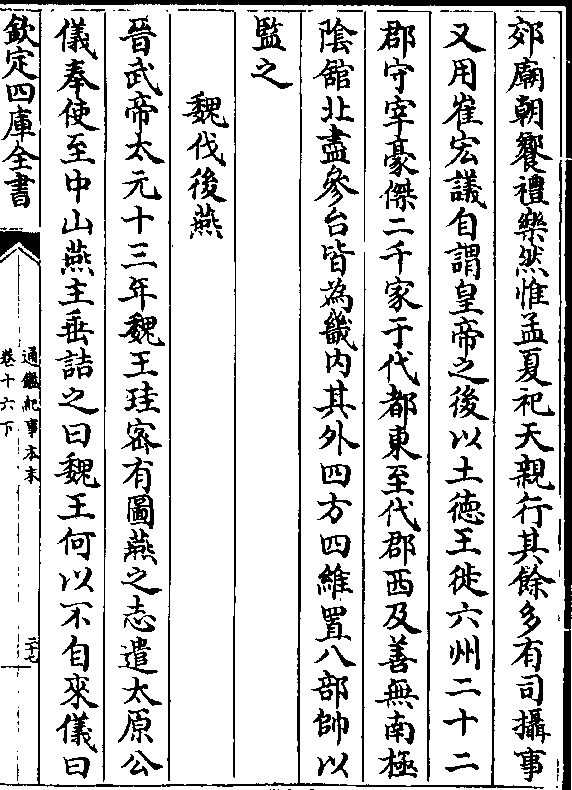 郊廟朝饗禮樂然惟孟夏祀天親行其餘多有司攝事
又用崔宏議自謂皇帝之後以土徳王徙六州二十二
郡守宰豪傑二千家于代都東至代郡西及善無南極
陰館北盡參台皆為畿内其外四方四維置八部帥以
監之
魏伐後燕
晉武帝太元十三年魏王珪宻有圖燕之志遣太原公
儀奉使至中山燕主垂詰之曰魏王何以不自來儀曰
欽定四庫全書
通鑑紀事本末
卷十六下
二十七